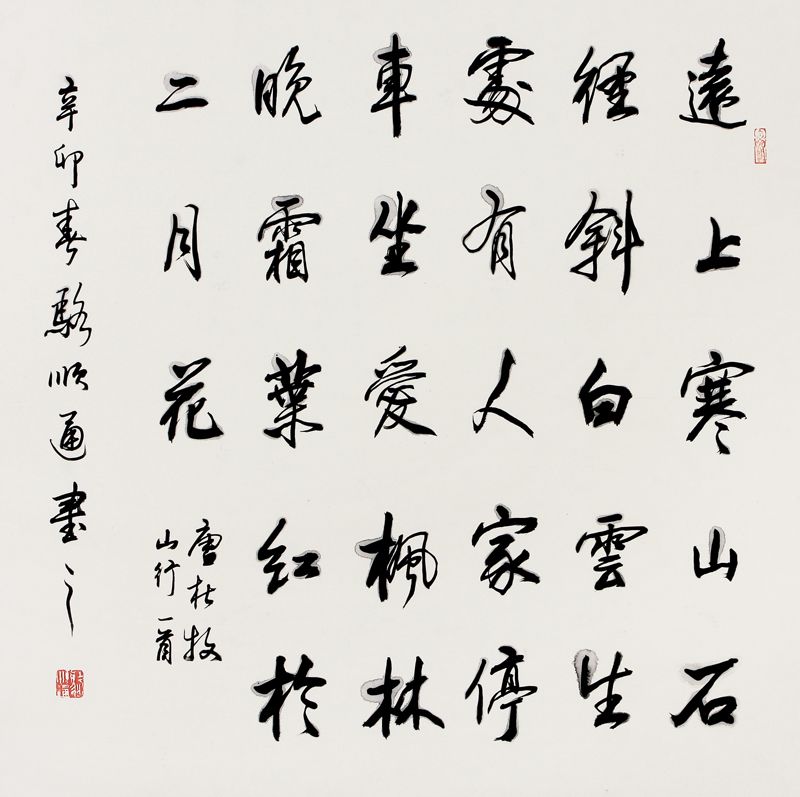 遠上寒山石
徑斜白雲生
處有人家停
車坐愛楓林
晚霜葉紅於
二月花
唐杜牧
山行一首
辛卯春駱順通書之